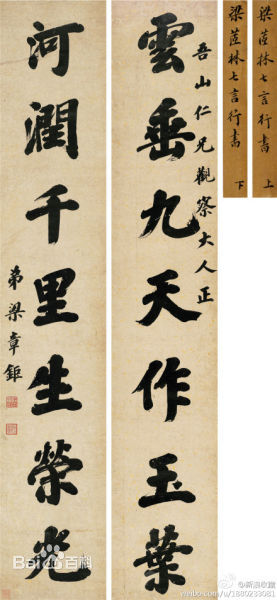 梁茝林七言行書 上
梁茝林七言行書 下
吾山仁兄觀察大人正
雲垂九天作玉葉
河潤千里生榮光
弟梁章鉅
Bai百科
@新浪收藏
weibo.com/u/1880233081